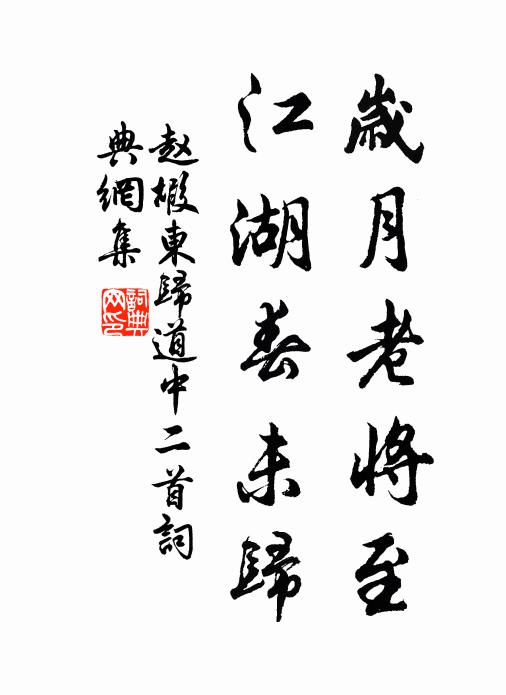 歲月老將至
江湖春未歸
赵嘏東歸道中二首詞
典網集
詞典
网印